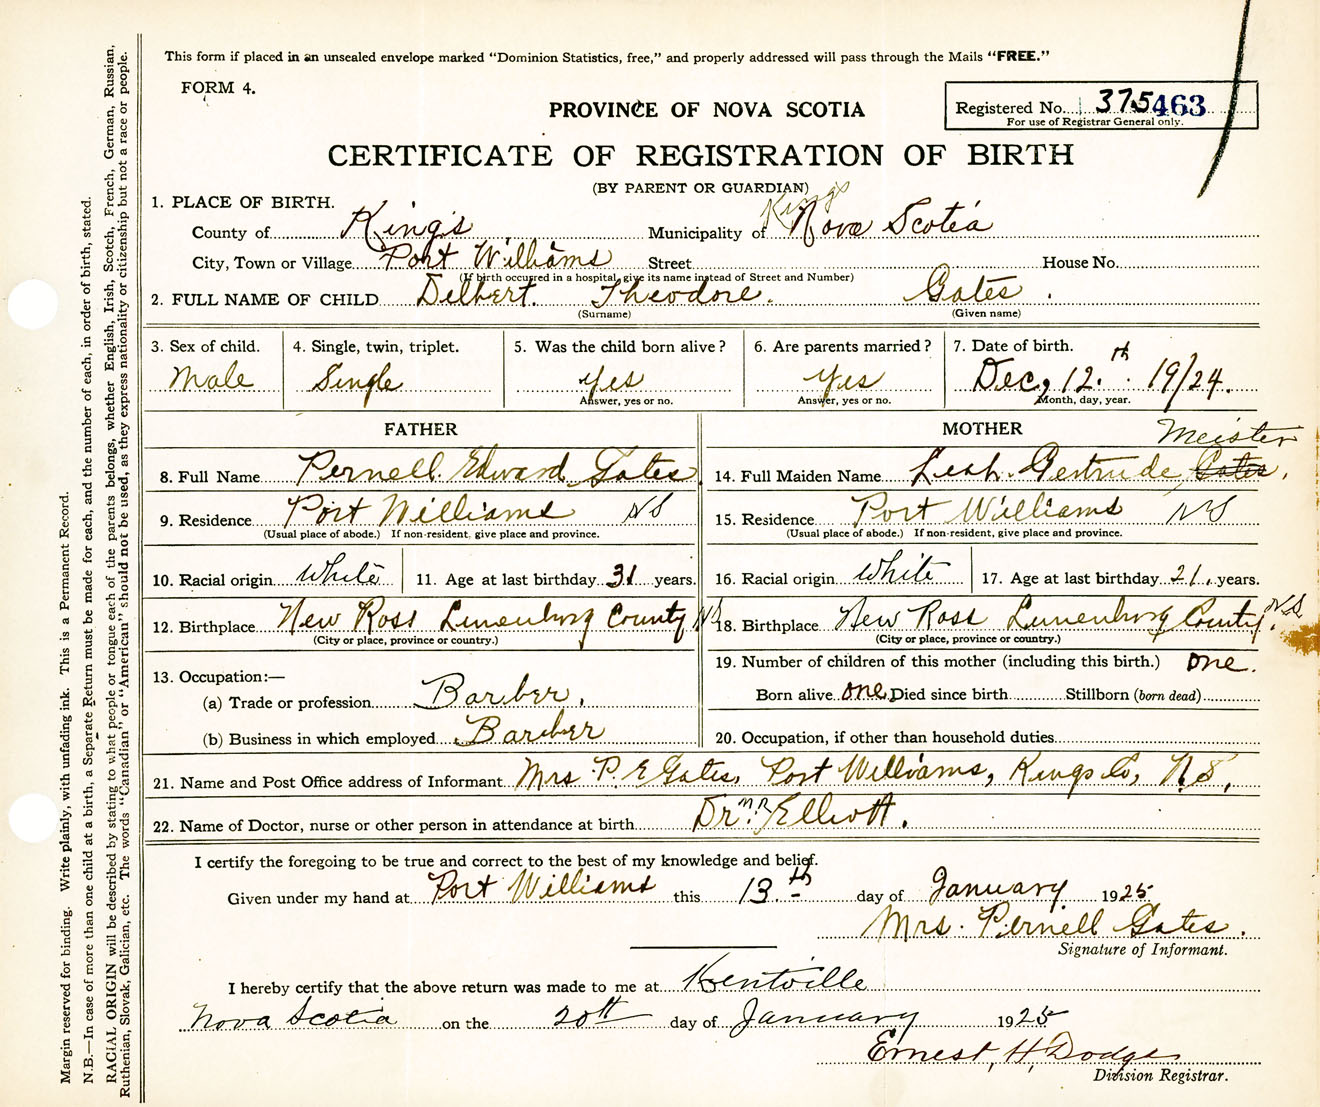 This form if placed in an unsealed envelope marked “Dominion Statistics, free,” and properly addressed will pass through the Mails “FREE.”
FORM 4.
PROVINCE OF NOVA SCOTIA
Registered No. 375463
For use of Registrar General only.
CERTIFICATE OF REGISTRATION OF BIRTH
(BY PARENT OR GUARDIAN)
1. PLACE OF BIRTH.
Kings
County of King's Municipality of Nova Scotia
City, Town or Village Port Williams Street House No.
(If birth occurred in a hospital, give its name instead of Street and Number)
2. FULL NAME OF CHILD Delbert. Theodore. Gates.
(Surname) (Given name)
3. Sex of child. 4. Single, twin, triplet. 5. Was the child born alive? 6. Are parents married? 7. Date of birth.
Male Single Yes Yes Dec, 12.th 19/24.
Answer, yes or no. Answer, yes or no. Month, day, year.
FATHER
8. Full Name Pernell Edward Gates
9. Residence Port Williams NS
(Usual place of abode.) If non-resident, give place and province.
10. Racial origin White 11. Age at last birthday 31 years.
12. Birthplace New Ross Lunenburg County NS
(City or place, province or country.)
13. Occupation:—
(a) Trade or profession Barber.
(b) Business in which employed Barber
MOTHER
Meister
14. Full Maiden Name Leah. Gertrude Gates.
15. Residence Port Williams NS
(Usual place of abode.) If non-resident, give place and province.
16. Racial origin White 17. Age at last birthday 21. years.
18. Birthplace New Ross Lunenburg County. N.S.
(City or place, province or country.)
19. Number of children of this mother (including this birth.) one.
Born alive one Died since birth Stillborn (born dead)
20. Occupation, if other than household duties
21. Name and Post Office address of Informant Mrs P. E Gates, Port Williams, Kings Co, N.S,
22. Name of Doctor, nurse or other person in attendance at birth Dr. Elliott.
I certify the foregoing to be true and correct to the best of my knowledge and belief.
Given under my hand at Port Williams this 13.th day of January 1925
Mrs. Pernell Gates.
Signature of Informant.
I hereby certify that the above return was made to me at Kentville
Nova Scotia on the 20th day of January 1925
Ernest H. Dodge
Division Registrar.
Margin reserved for binding. Write plainly, with unfading ink. This is a Permanent Record.
N.B.—In case of more than one child at a birth, a Separate Return must be made for each, and the number of each, in order of birth, stated.
RACIAL ORIGIN will be described by stating to what people or tongue each of the parents belongs, whether English, Irish, Scotch, French, German, Russian,
Ruthenian, Slovak, Galician, etc. The words “Canadian” or “American” should not be used, as they express nationality or citizenship but not a race or people.